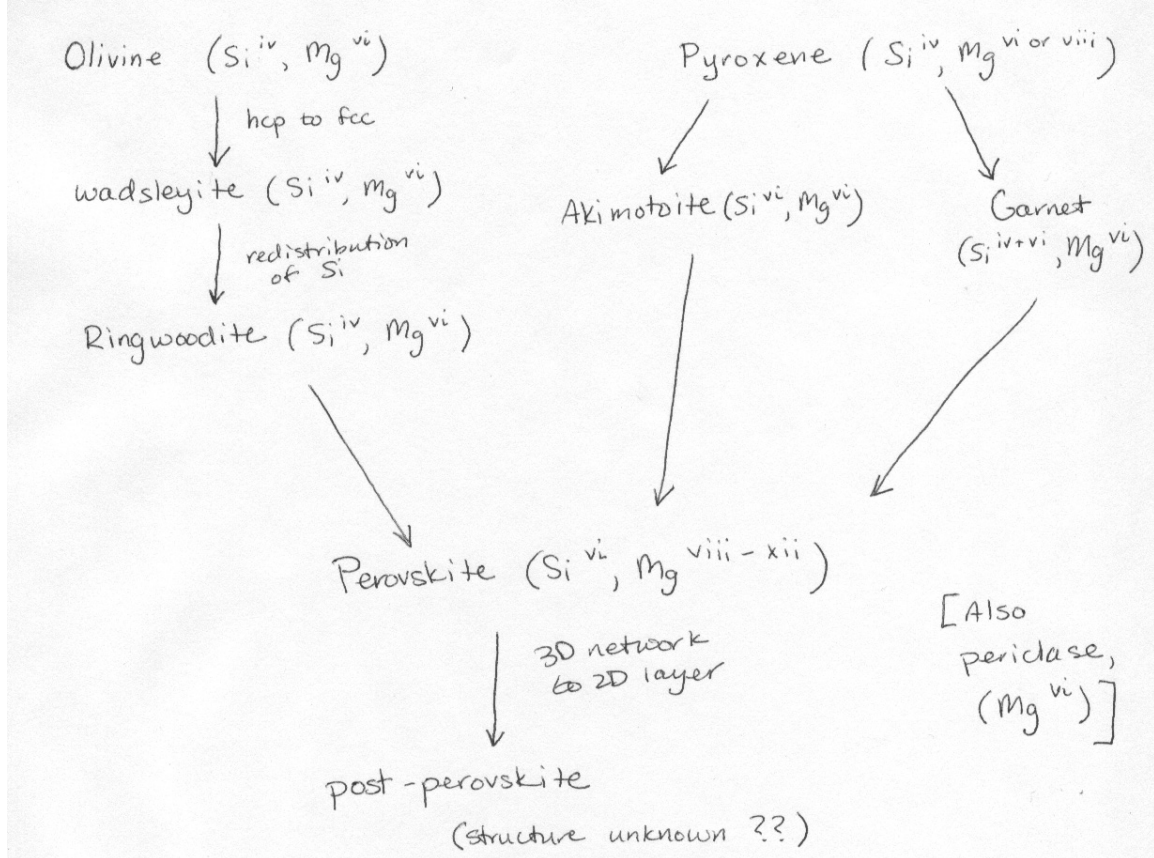 Olivine (Si iv, Mg vi)
hcp to fcc
wadsleyite (Si iv, Mg vi)
redistribution
of Si
Ringwoodite (Si iv, Mg vi)
Pyroxene (Si iv, Mg vi or viii)
Akimotoite (Si vi, Mg vi)
Garnet
(Si iv+vi, Mg vi)
Perovskite (Si vi, Mg viii-xii)
3D network
to 2D layer
post-perovskite
(structure unknown ??)
[Also
periclase,
(Mg vi)]